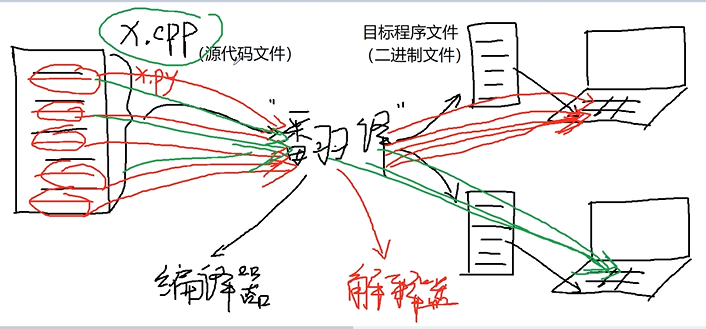 x.cpp
(源代码文件)
x.py
目标程序文件
(二进制文件)
"翻译"
编译器
解释器